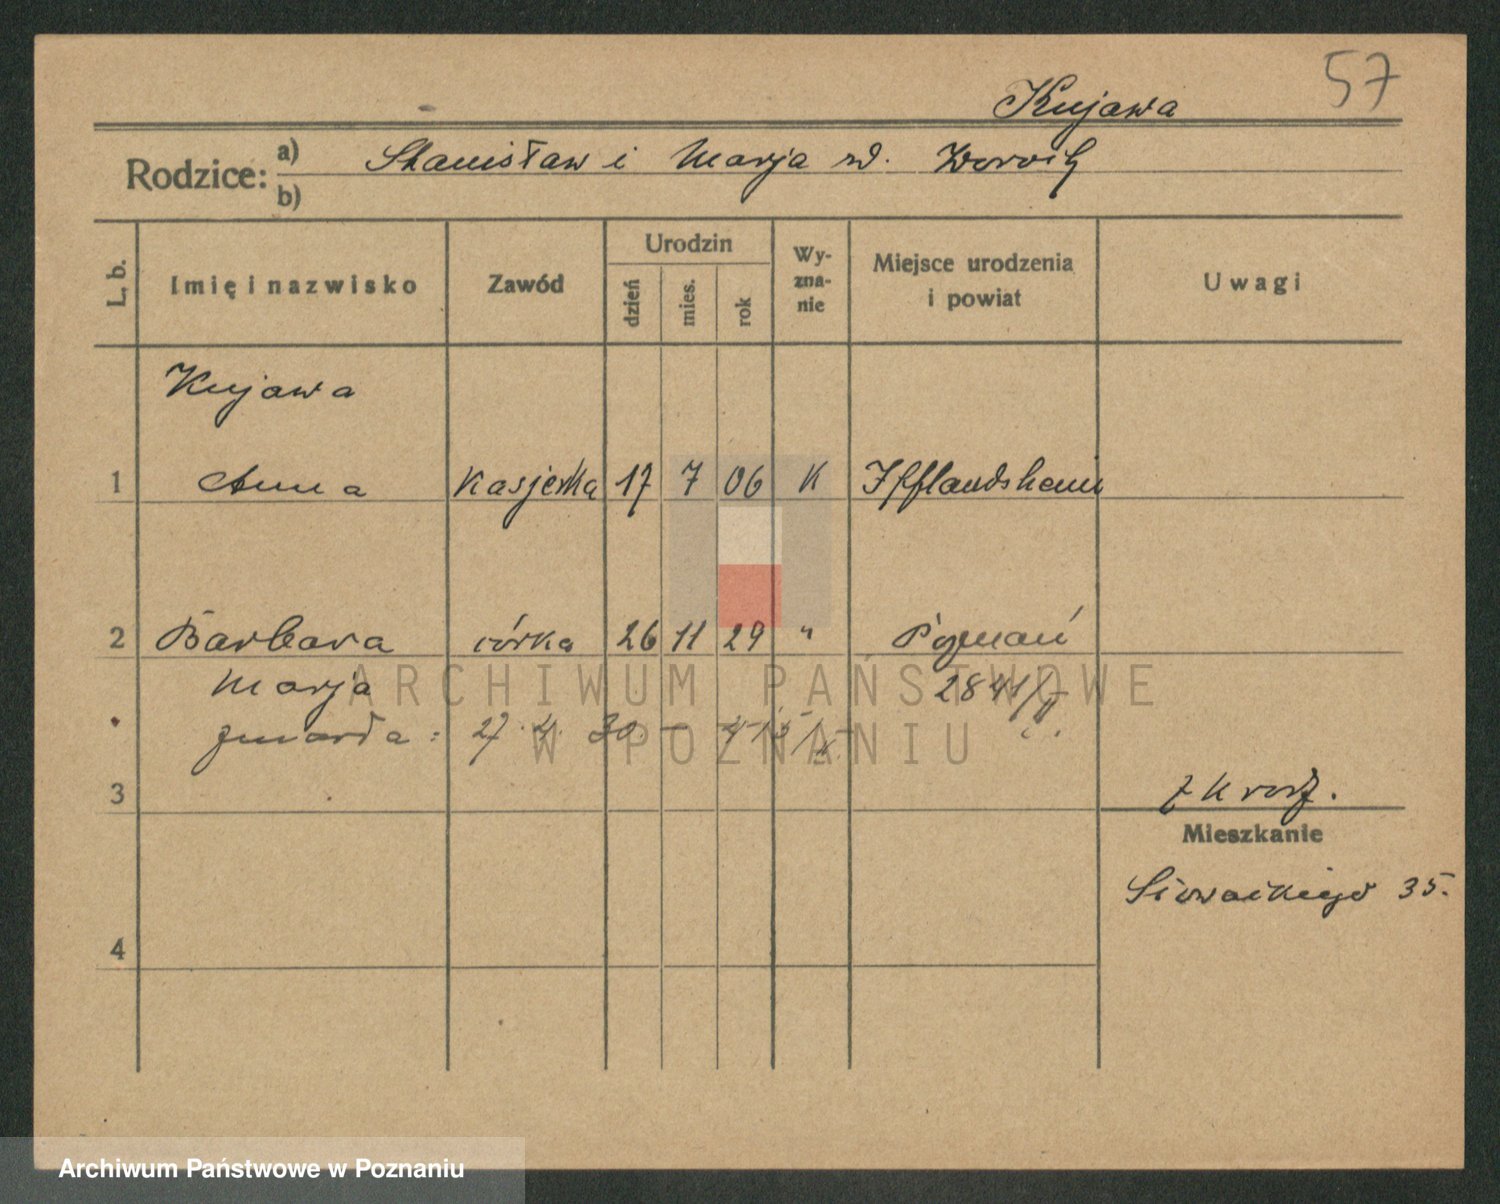 57
Kujawa
Rodzice: a) Stanisław i Marja rd.
b)
L. b. Imię i nazwisko Zawód Urodzin dzień mies. rok Wyznanie Miejsce urodzenia i powiat Uwagi
Kujawa
1 Anna Kasjerka 17 7 06 K Ifflandsheim
2 Barbara córka 26 11 29 " Poznań
Marja 2841/
zmarła: 27. 4. 30. —
3
z K rodz.
Mieszkanie
Słowackiego 35.
4
ARCHIWUM PAŃSTWOWE
W POZNANIU
Archiwum Państwowe w Poznaniu